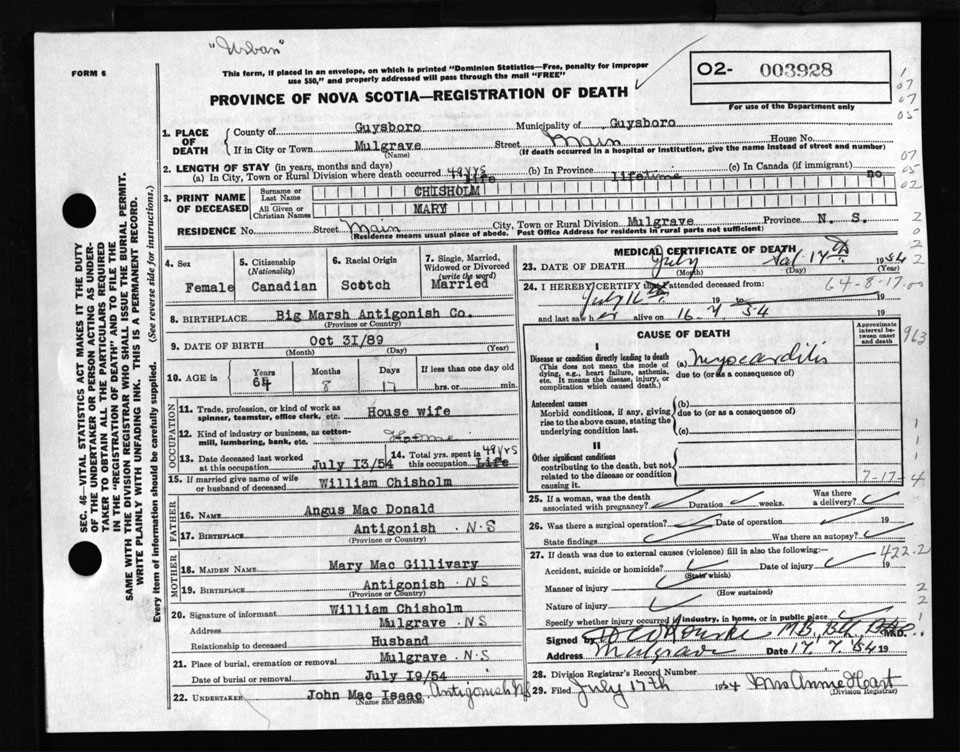 "Urban"
FORM 6
This form, if placed in an envelope, on which is printed "Dominion Statistics—Free, penalty for improper
use $50," and properly addressed will pass through the mail "FREE"
PROVINCE OF NOVA SCOTIA—REGISTRATION OF DEATH
O2- 003928
For use of the Department only
1
07
07
05
1. PLACE OF DEATH
County of Guysboro Municipality of Guysboro
If in City or Town Mulgrave Street Main House No.
(Name) (If death occurred in a hospital or institution, give the name instead of street and number)
2. LENGTH OF STAY (in years, months and days)
(a) In City, Town or Rural Division where death occurred 49 yrs life (b) In Province lifetime (c) In Canada (if immigrant) no
07
05
02
3. PRINT NAME OF DECEASED
Surname or Last Name CHISHOLM
All Given or Christian Names MARY
RESIDENCE No. Street Main City, Town or Rural Division Mulgrave Province N. S.
(Residence means usual place of abode. Post Office Address for residents in rural parts not sufficient)
2
0
2
2
4. Sex
Female
5. Citizenship
(Nationality)
Canadian
6. Racial Origin
Scotch
7. Single, Married,
Widowed or Divorced
(write the word)
Married
8. BIRTHPLACE Big Marsh Antigonish Co.
(Province or Country)
9. DATE OF BIRTH Oct 31/89
(Month) (Day) (Year)
10. AGE in Years 64 Months 8 Days 17 If less than one day old
hrs. or min.
OCCUPATION
11. Trade, profession, or kind of work as
spinner, teamster, office clerk, etc. House wife
12. Kind of industry or business, as cotton-
mill, lumbering, bank, etc. Home
13. Date deceased last worked
at this occupation July 13/54
14. Total yrs. spent in
this occupation 49 yrs Life
15. If married give name of wife
or husband of deceased William Chisholm
FATHER
16. NAME Angus Mac Donald
17. BIRTHPLACE Antigonish . N.S
(Province or Country)
MOTHER
18. MAIDEN NAME Mary Mac Gillivary
19. BIRTHPLACE Antigonish . NS
(Province or Country)
20. Signature of informant William Chisholm
Address Mulgrave . NS
Relationship to deceased Husband
21. Place of burial, cremation or removal Mulgrave . N.S
Date of burial or removal July 19/54
22. UNDERTAKER John Mac Isaac, Antigonish NS
(Name and address)
MEDICAL CERTIFICATE OF DEATH
23. DATE OF DEATH July Sat. 17th 1954
(Month) (Day) (Year)
24. I HEREBY CERTIFY that I attended deceased from:
64-8-17.00
July 16th 19 to 19
and last saw her alive on 16.7.54 19
CAUSE OF DEATH
Approximate
interval be-
tween onset
and death
963
I
Disease or condition directly leading to death
(This does not mean the mode of
dying, e.g., heart failure, asthenia,
etc. It means the disease, injury, or
complication which caused death.)
(a) Myocarditis
due to (or as a consequence of)
Antecedent causes
Morbid conditions, if any, giving
rise to the above cause, stating the
underlying condition last.
(b)
due to (or as a consequence of)
(c)
II
Other significant conditions
contributing to the death, but not
related to the disease or condition
causing it.
1
1
1
7-17-4
25. If a woman, was the death
associated with pregnancy? Duration weeks. Was there
a delivery?
26. Was there a surgical operation? Date of operation 19
State findings Was there an autopsy?
27. If death was due to external causes (violence) fill in also the following:—
422.2
Accident, suicide or homicide? Date of injury 19
(State which)
Manner of injury
(How sustained)
Nature of injury
2
2
Specify whether injury occurred in industry, in home, or in public place
Signed by M.B., M.D.
Address Mulgrave Date 17.7.54 19
28. Division Registrar's Record Number
29. Filed July 17th 1954 Mrs Annie Hart
(Division Registrar)
SEC. 46—VITAL STATISTICS ACT MAKES IT THE DUTY
OF THE UNDERTAKER OR PERSON ACTING AS UNDER-
TAKER TO OBTAIN ALL THE PARTICULARS REQUIRED
IN THE "REGISTRATION OF DEATH" AND TO FILE THE
SAME WITH THE DIVISION REGISTRAR WHO SHALL ISSUE THE BURIAL PERMIT.
WRITE PLAINLY WITH UNFADING INK. THIS IS A PERMANENT RECORD.
Every item of information should be carefully supplied. (See reverse side for instructions.)